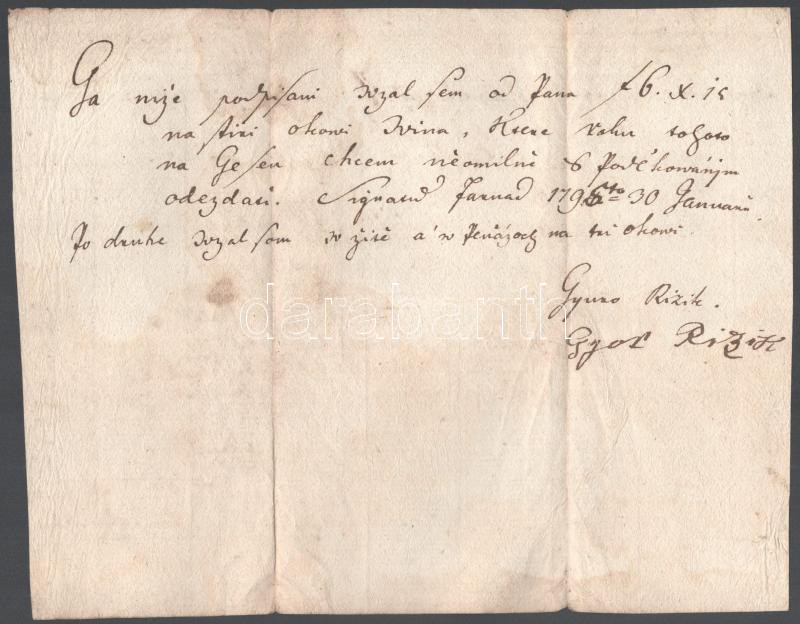 Ga niže podpisani wzal sem od Pana f 6. x. 15
na štiri okowi Wina, Ktere roku tohoto
na Gesen chcem neomilně S Poďěkowánjm
odezdati. Signatū Jarnad 1796to 30 Januarii.
Po druhe wzal sem w žitě a w Peňázoch na tri okowi.
Gyuro Rizik.
Gyor Rizik
darabanth